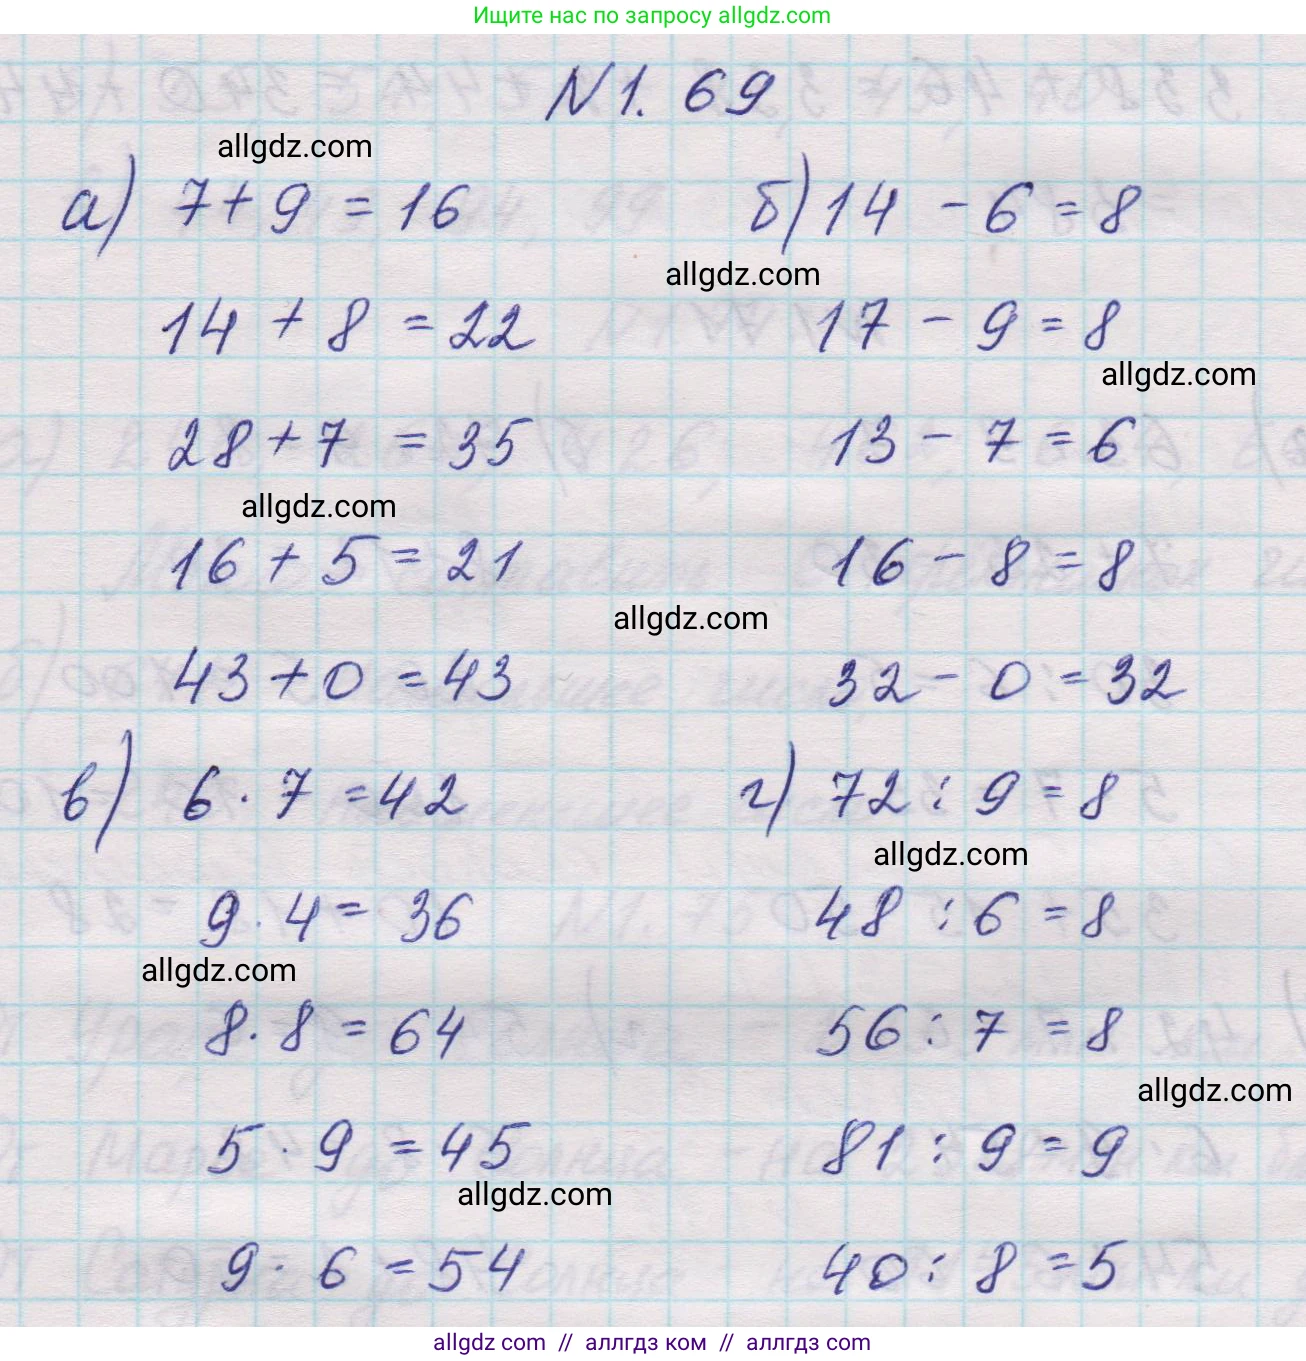 Ищите нас по запросу allgdz.com
N1. 69
allgdz.com
а) 7+9 = 16
б) 14 - 6 = 8
allgdz.com
14 + 8 = 22
17 - 9 = 8
allgdz.com
28+7 = 35
13 - 7 = 6
allgdz.com
16 + 5 = 21
16 - 8 = 8
allgdz.com
43+0 = 43
32 - 0 = 32
в) 6 · 7 = 42
г) 72 : 9 = 8
allgdz.com
9 · 4 = 36
48 : 6 = 8
allgdz.com
8 · 8 = 64
56 : 7 = 8
allgdz.com
5 · 9 = 45
81 : 9 = 9
allgdz.com
9 · 6 = 54
40 : 8 = 5
allgdz.com // аллгдз ком // аллгдз.com